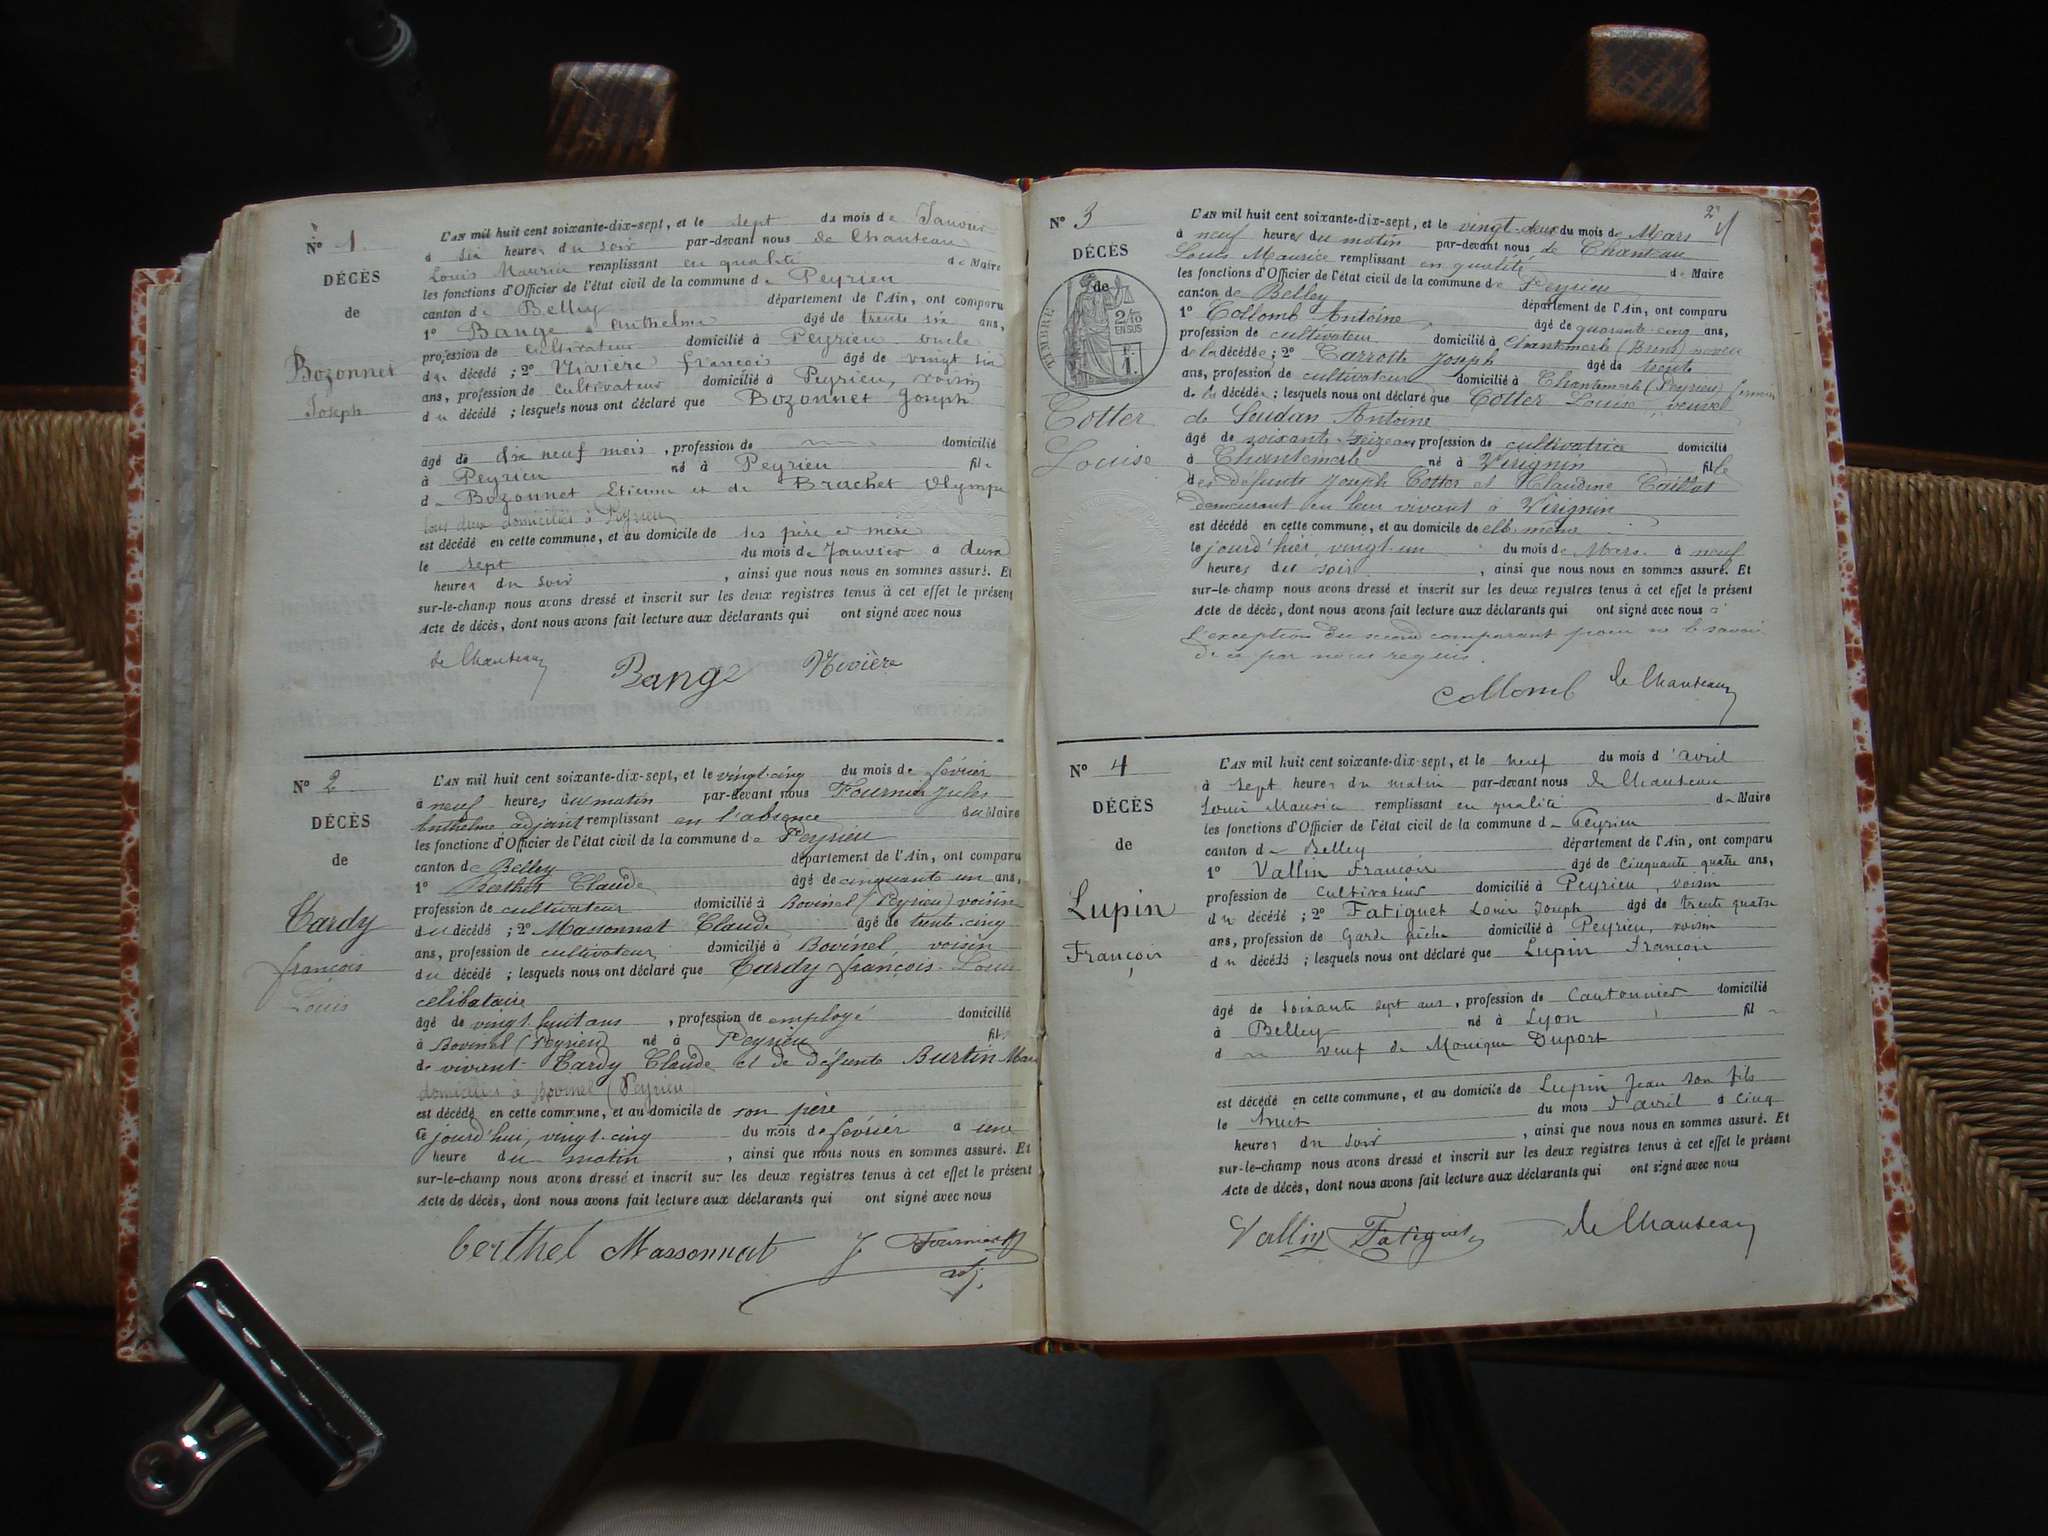 N° 1.
DÉCÈS
de
Bozonnet
Joseph
L'AN mil huit cent soixante-dix-sept, et le sept du mois de Janvier
à six heures du soir par-devant nous de Chanteau
Louis Maurice remplissant en qualité de Maire
les fonctions d'Officier de l'état civil de la commune de Peyrieu
canton de Belley département de l'Ain, ont comparu
1° Bange Anthelme âgé de trente six ans,
profession de cultivateur domicilié à Peyrieu oncle
du décédé ; 2° Rivière françois âgé de vingt six
ans, profession de cultivateur domicilié à Peyrieu, voisin
du décédé ; lesquels nous ont déclaré que Bozonnet Joseph
âgé de dix neuf mois, profession de domicilié
à Peyrieu né à Peyrieu fils
de Bozonnet Etienne et de Brachet Olympe
tous deux domiciliés à Peyrieu
est décédé en cette commune, et au domicile de ses père et mère
le sept du mois de Janvier à deux
heures du soir, ainsi que nous nous en sommes assuré. Et
sur-le-champ nous avons dressé et inscrit sur les deux registres tenus à cet effet le présent
Acte de décès, dont nous avons fait lecture aux déclarants qui ont signé avec nous
de Chanteau Bange Rivière
N° 2
DÉCÈS
de
Tardy
françois
Louis
L'AN mil huit cent soixante-dix-sept, et le vingt-cinq du mois de février
à neuf heures du matin par-devant nous Fournier Jules
Anthelme adjoint remplissant en l'absence du Maire
les fonctions d'Officier de l'état civil de la commune de Peyrieu
canton de Belley département de l'Ain, ont comparu
1° Berthet Claude âgé de cinquante un ans,
profession de cultivateur domicilié à Bovinel (Peyrieu) voisin
du décédé ; 2° Massonnat Claude âgé de trente-cinq
ans, profession de cultivateur domicilié à Bovinel, voisin
du décédé ; lesquels nous ont déclaré que Tardy françois-Louis
célibataire
âgé de vingt huit ans, profession de employé domicilié
à Bovinel (Peyrieu) né à Peyrieu fils
de vivant Tardy Claude et de défunte Burtin Marie
domiciliés à Bovinel (Peyrieu)
est décédé en cette commune, et au domicile de son père
le jourd'hui, vingt-cinq du mois de février à une
heure du matin, ainsi que nous nous en sommes assuré. Et
sur-le-champ nous avons dressé et inscrit sur les deux registres tenus à cet effet le présent
Acte de décès, dont nous avons fait lecture aux déclarants qui ont signé avec nous
berthet Massonnat J Fournier
adj.
2
N° 3
DÉCÈS
de
TIMBRE
2/10
EN SUS
F.
1.
Cotter
Louise
L'AN mil huit cent soixante-dix-sept, et le vingt-deux du mois de Mars
à neuf heures du matin par-devant nous de Chanteau
Louis Maurice remplissant en qualité de Maire
les fonctions d'Officier de l'état civil de la commune de Peyrieu
canton de Belley département de l'Ain, ont comparu
1° Collomb Antoine, âgé de quarante-cinq ans,
profession de cultivateur domicilié à Chantemerle (Brens) neveu
de la décédée ; 2° Carrotte Joseph âgé de trente
ans, profession de cultivateur domicilié à Chantemerle (Peyrieu) fermier
de la décédée ; lesquels nous ont déclaré que Cotter Louise, veuve
de Soudan Antoine
âgé de soixante-seize ans, profession de cultivatrice domicilié
à Chantemerle né à Virignin fille
des défunts Joseph Cotter et Claudine Caillat
demeurant en leur vivant à Virignin
est décédé en cette commune, et au domicile de elle même
le jourd'hier vingt-un du mois de Mars à neuf
heures du soir, ainsi que nous nous en sommes assuré. Et
sur-le-champ nous avons dressé et inscrit sur les deux registres tenus à cet effet le présent
Acte de décès, dont nous avons fait lecture aux déclarants qui ont signé avec nous à
l'exception du second comparant pour ne le savoir
de ce par nous requis.
Collomb de Chanteau
N° 4
DÉCÈS
de
Lupin
François
L'AN mil huit cent soixante-dix-sept, et le neuf du mois d'avril
à sept heures du matin par-devant nous de Chanteau
Louis Maurice remplissant en qualité de Maire
les fonctions d'Officier de l'état civil de la commune de Peyrieu
canton de Belley département de l'Ain, ont comparu
1° Vallin François âgé de cinquante quatre ans,
profession de cultivateur domicilié à Peyrieu, voisin
du décédé ; 2° Fatiguet Louis Joseph âgé de trente quatre
ans, profession de Garde pêche domicilié à Peyrieu, voisin
du décédé ; lesquels nous ont déclaré que Lupin François
âgé de soixante sept ans, profession de Cantonnier domicilié
à Belley né à Lyon, fil
d veuf de Monique Duport
est décédé en cette commune, et au domicile de Lupin Jean son fils
le huit du mois d'avril à cinq
heures du soir, ainsi que nous nous en sommes assuré. Et
sur-le-champ nous avons dressé et inscrit sur les deux registres tenus à cet effet le présent
Acte de décès, dont nous avons fait lecture aux déclarants qui ont signé avec nous
Vallin Fatiguet de Chanteau